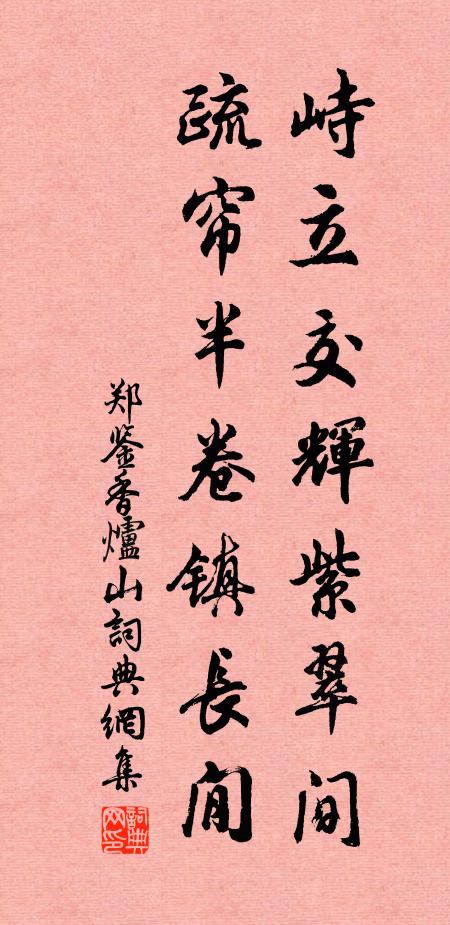 峙立交輝紫翠间
疏帘半卷镇長閒
郑鉴香爐山詞典網集
詞典网印